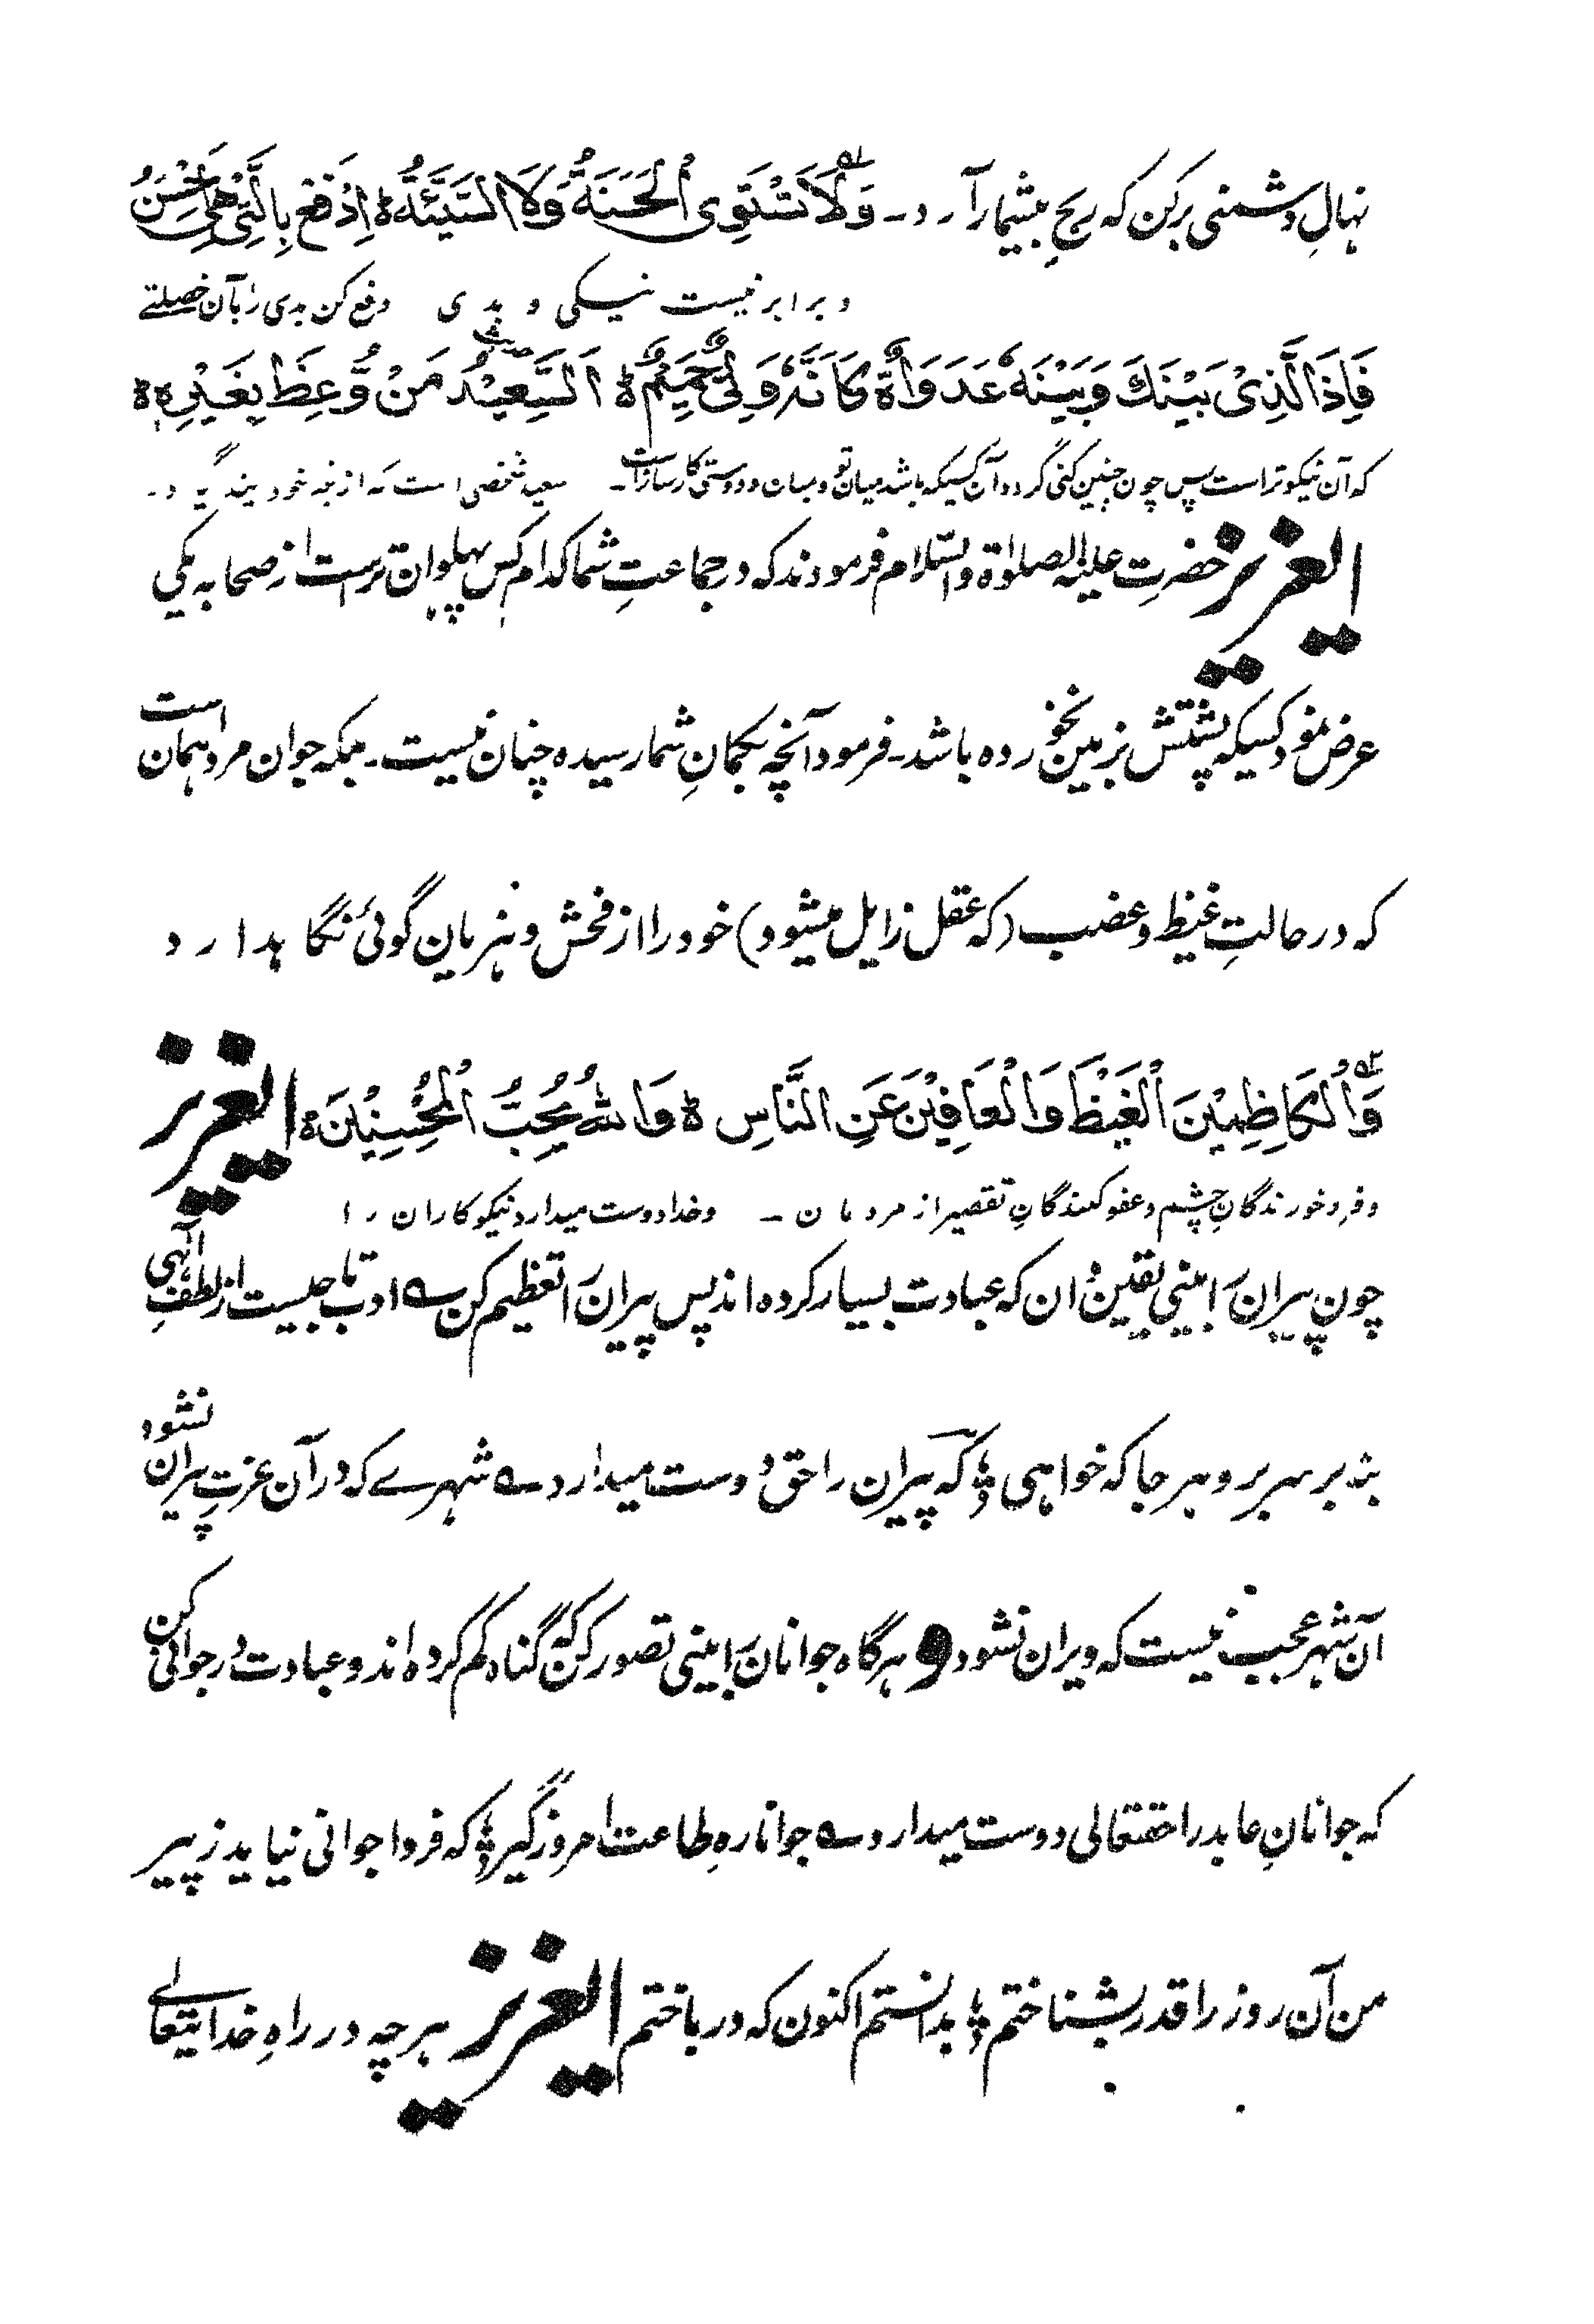 نہالِ دشمنی برکن کہ رنجِ بیشمار آرد۔ وَلَا تَسْتَوِی الْحَسَنَةُ وَلَا السَّیِّئَةُ ط اِدْفَعْ بِالَّتِیْ هِیَ اَحْسَنُ
و برابر نیست نیکی و بدی دفع کن بدی را بآن خصلتے
فَاِذَا الَّذِیْ بَیْنَكَ وَبَیْنَهٗ عَدَاوَةٌ كَاَنَّهٗ وَلِیٌّ حَمِیْمٌ ط اَلسَّعِیْدُ مَنْ وُّعِظَ بِغَیْرِهٖ ط
کہ آن نیکوتر است پس چون چنین کنی گردد آن کسیکہ باشد میان تو و میان او دوستی کارساز است۔ سعید شخصی است کہ از غیر خود پند گیرد۔
ایعزیز حضرتِ علیہ الصلوٰۃ والسّلام فرمودند کہ در جماعتِ شما کدام کس پہلوان تر است از صحابہ یکی
عرض نمود کسیکہ پشتش بزمین نخورده باشد۔ فرمود آنچہ بگمانِ شما رسیده چنان نیست۔ بلکہ جوان مرد ہمان است
کہ در حالتِ غیظ و غضب (کہ عقل زایل میشود) خود را از فحش و ہزیان گوئی نگاہدارد
وَالْكَاظِمِیْنَ الْغَیْظَ وَالْعَافِیْنَ عَنِ النَّاسِ ط وَاللهُ یُحِبُّ الْمُحْسِنِیْنَ ط ایعزیز
و فرو خورندگانِ خشم و عفو کنندگانِ تقصیر از مردمان۔ و خدا دوست میدارد نیکوکاران را
چون پیران را بینی یقین دان کہ عبادت بسیار کرده اند پس پیران را تعظیم کن ے ادب تاجیست از لطفِ الٰہی
بنہ بر سر برو ہر جا کہ خواہی کہ پیران را حق دوست میدارد ے شہرے کہ در آن عزتِ پیران نشود
آن شہر عجب نیست کہ ویران نشود و ہرگاہ جوانان را بینی تصور کن کہ گناہ کم کرده اند و عبادت در جوانی کن
کہ جوانانِ عابد را حقتعالی دوست میدارد ے جوانا رہِ طاعت امروز گیر کہ فردا جوانی نیاید ز پیر
من آن روز را قدر بشناختم بدانستم اکنون کہ در باختم ایعزیز ہرچہ در راہِ خدایتعالے